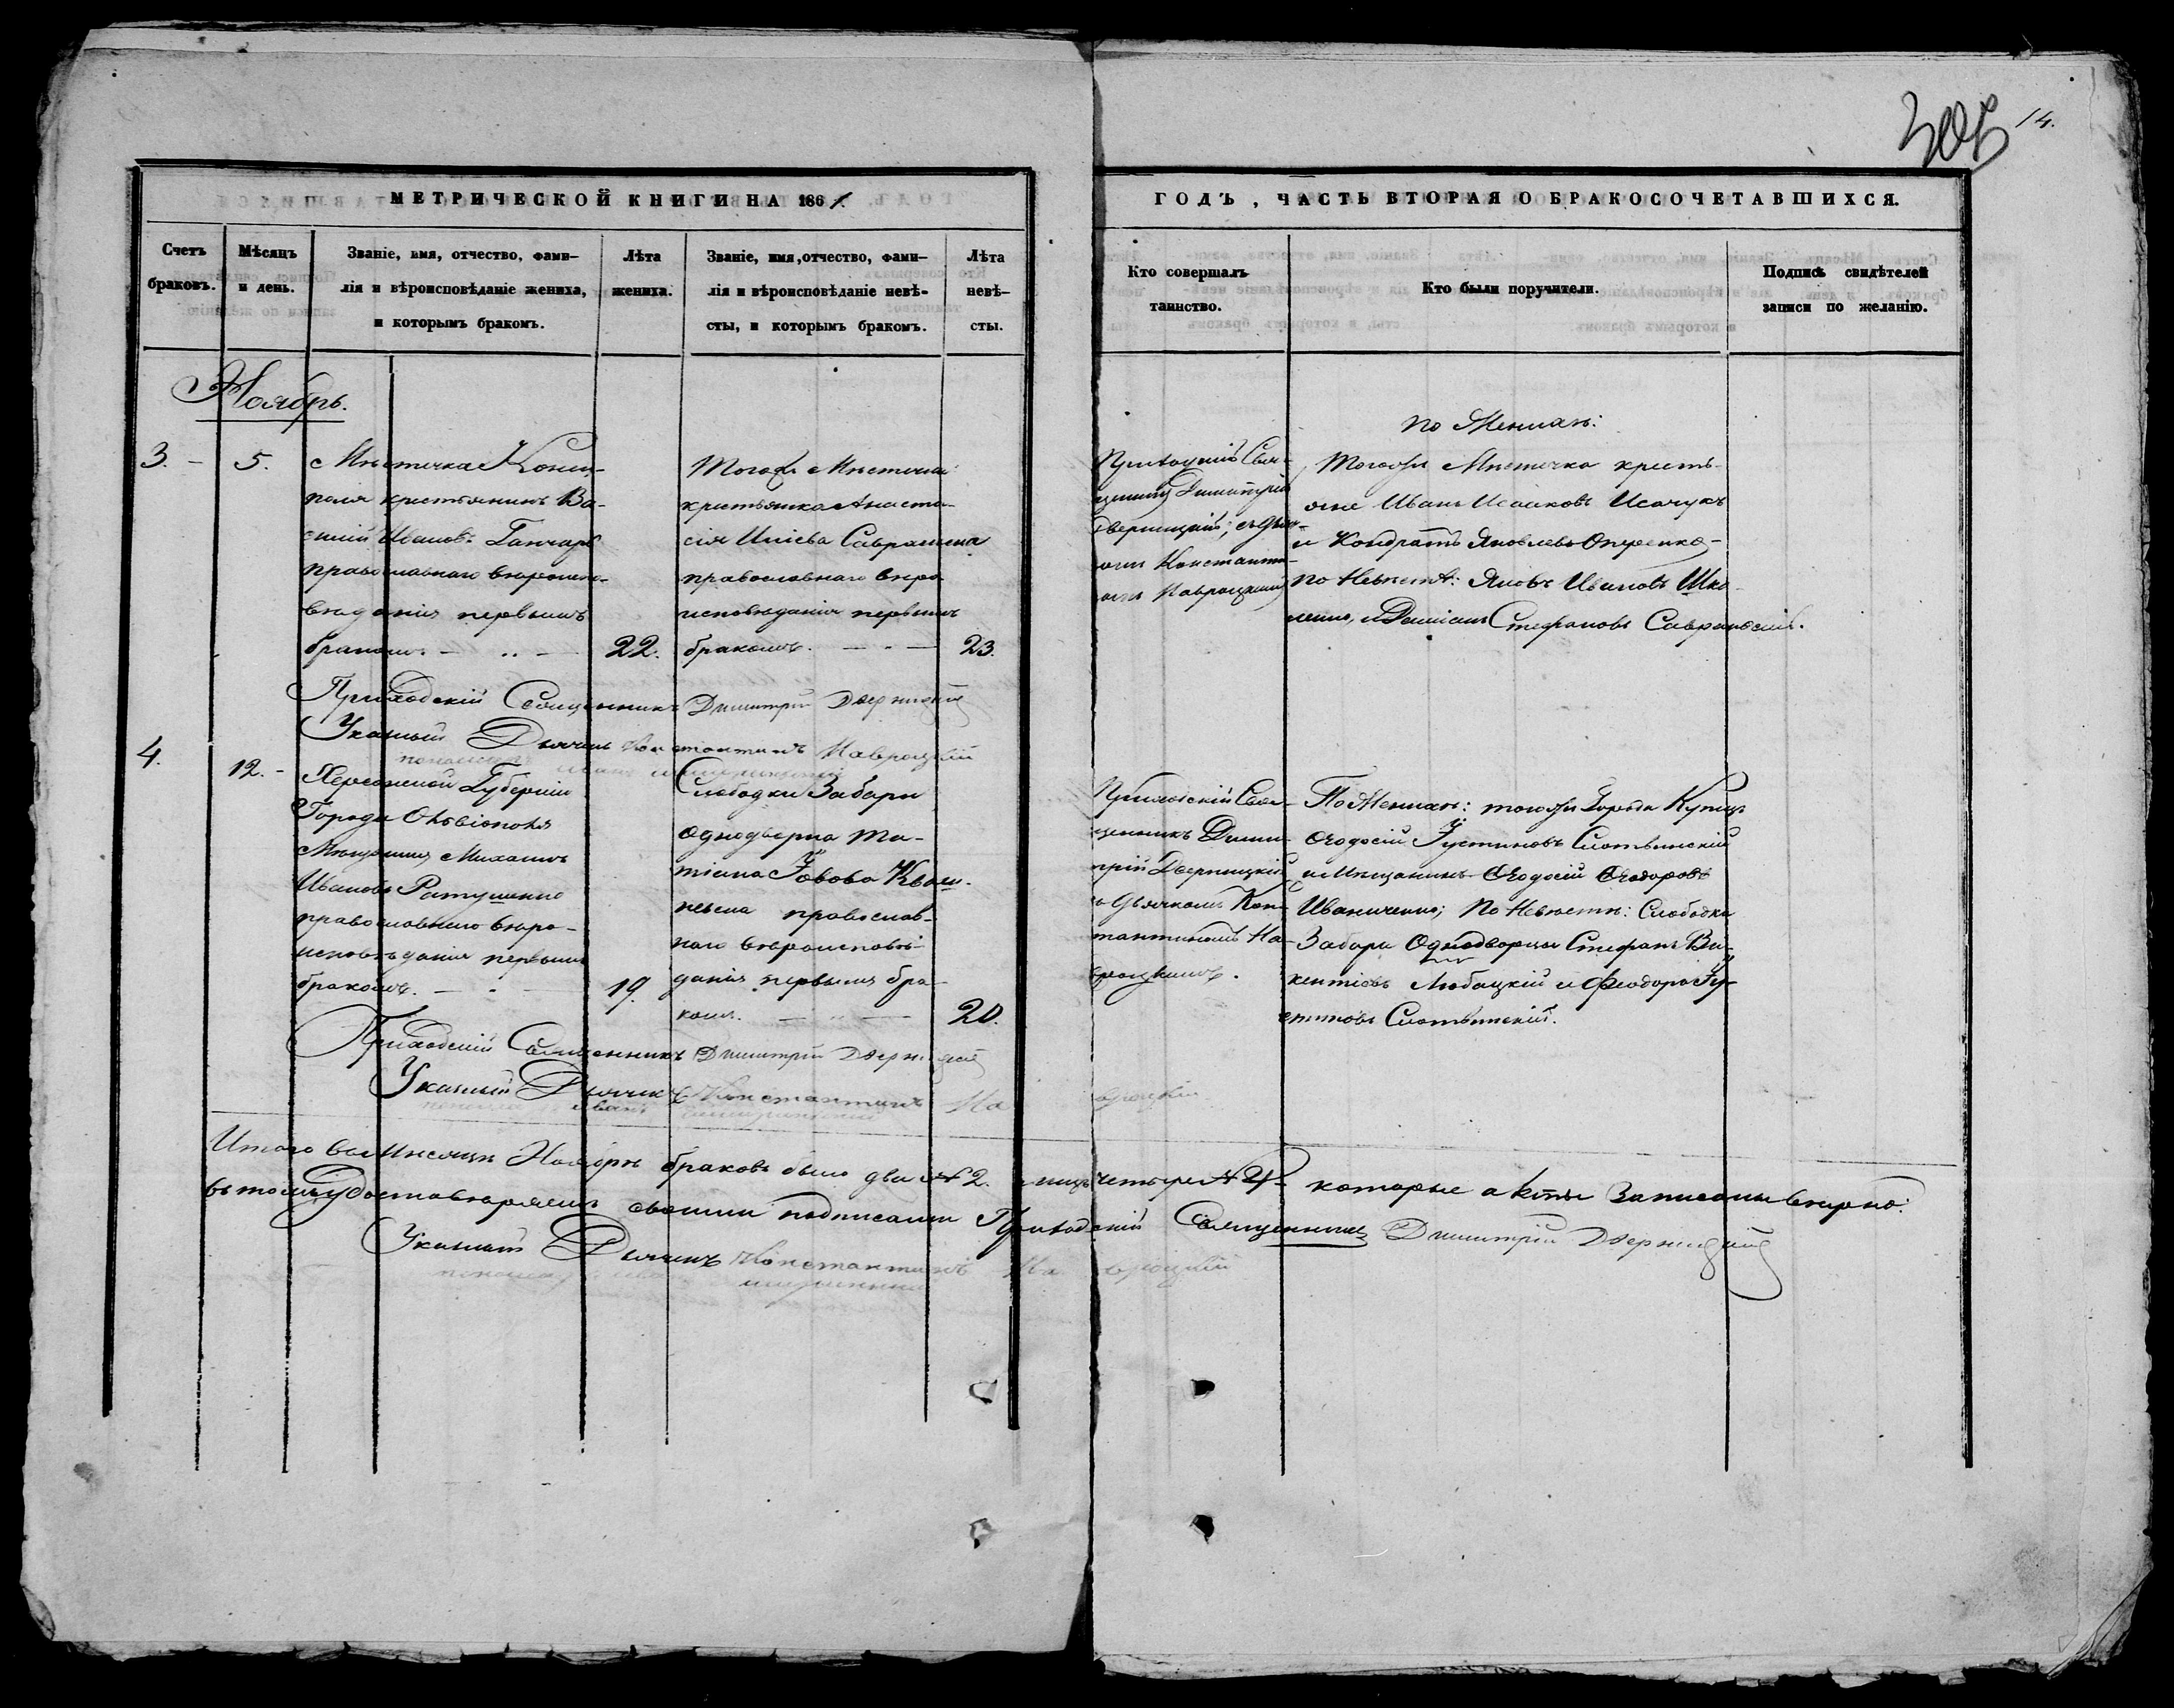 14.
МЕТРИЧЕСКОЙ КНИГИ НА 1861
ГОДЪ, ЧАСТЬ ВТОРАЯ О БРАКОСОЧЕТАВШИХСЯ.
Счетъ
браковъ.
Мѣсяцъ
и день.
Званіе, имя, отчество, фами-
лія и вѣроисповѣданіе жениха,
и которымъ бракомъ.
Лѣта
жениха.
Званіе, имя, отчество, фами-
лія и вѣроисповѣданіе невѣ-
сты, и которымъ бракомъ.
Лѣта
невѣ-
сты.
Кто совершалъ
таинство.
Кто были поручители.
Подпись свидѣтелей
записи по желанію.
Ноябрь.
3.
5.
Мѣстечка
крестьянинъ Ва-
силій Ивановъ Ганчаръ
православнаго вѣроиспо-
вѣданія первымъ
бракомъ.
22.
Тогожъ Мѣстечка
крестьянка Анаста-
сія Иліева
православнаго вѣро-
исповѣданія первымъ
бракомъ.
23.
Приходскій Свя-
щенникъ Димитрій
Дверницкій; съ Дьяч-
комъ Константи-
номъ Навроцкимъ
По Женихѣ:
Тогожъ Мѣстечка кресть-
яне Иванъ Исааковъ Исачукъ
и Кондратъ Яковлевъ
По Невѣстѣ: Яковъ Ивановъ
и Даміанъ Стефановъ Савранскій.
Приходскій Священникъ Димитрій Дверницкій
Указный Дьячекъ Константинъ Навроцкій
4.
12.
Херсонской Губерніи
Города Ольвіополя
Мѣщанинъ Михаилъ
Ивановъ Ратушенко
православнаго вѣро-
исповѣданія первымъ
бракомъ.
19.
Слободки Забари
Однодворка Та-
тіана Іовова
православ-
наго вѣроисповѣ-
данія первымъ бра-
комъ.
20.
Приходскій Свя-
щенникъ Дими-
трій Дверницкій
съ Дьячкомъ Конс-
тантиномъ На-
вроцкимъ.
По Женихѣ: тогожъ Города Купецъ
Ѳеодосій Іустиновъ Слотвинскій
и Мѣщанинъ Ѳеодосій Ѳеодоровъ
Иваниченко; По Невѣстѣ: Слободки
Забари Однодворцы Стефанъ Ви-
кентіевъ Любацкій и Ѳеодоръ Іу-
стиновъ Слотвинскій.
Приходскій Священникъ Димитрій Дверницкій
Указный Дьячекъ Константинъ Навроцкій
Итого въ Мѣсяцѣ Ноябрѣ браковъ было два № 2. лицъ четыре № 4. которые акты записаны вѣрно:
въ томъ удостовѣряемъ своими подписами Приходскій Священникъ Димитрій Дверницкій
Указный Дьячекъ Константинъ Навроцкій